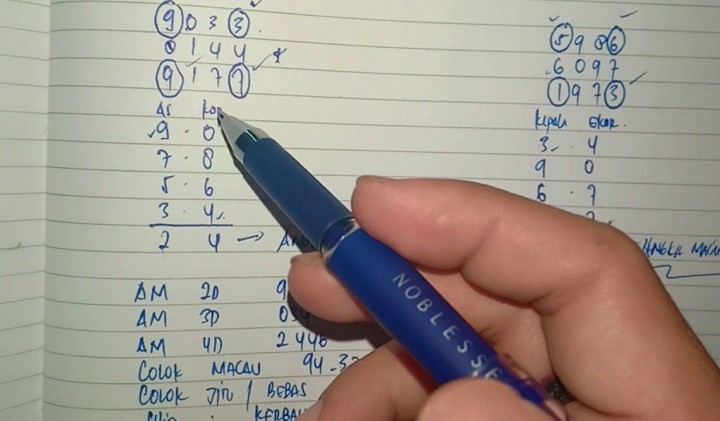 9 0 3 3
0 1 4 4
9 1 7 7
AS KOP
9 . 0
7 . 8
5 . 6
3 . 4
2 4 →
AM 2D 9
AM 3D 034
AM 4D 2446
COLOK MACAU 94-32
COLOK JITU / BEBAS
KERBAU
5 9 0 6
6 0 9 7
1 9 7 3
KEPALA EKOR.
3 . 4
9 0
6 . 7
ANGKA MAIN
NOBLESSE